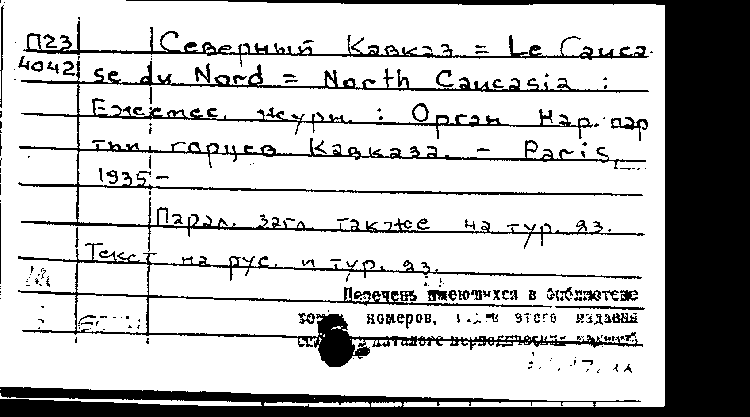 П23 Северный Кавказ = Le Cauca-
4042 se du Nord = North Caucasia :
Ежемес. журн. : Орган Нар. пар
тии горцев Кавказа. - Paris,
1935 -
Парал. загл. также на тур. яз.
Текст на рус. и тур. яз.
Перечень имеющихся в библиотеке
номеров, этого издания
в каталоге периодических изданий